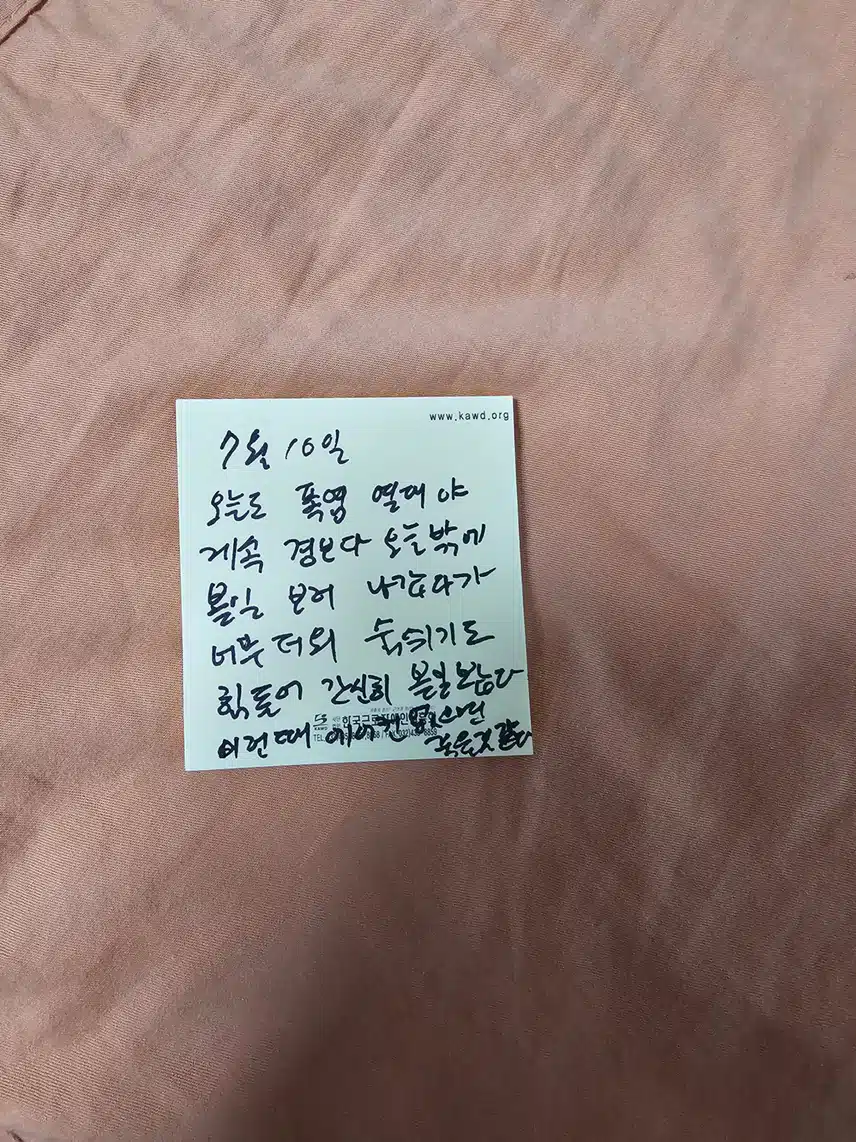 www.kawd.org
7월 10일
오늘도 폭염 열대야
계속 경보다 오늘밖에
볼일 보러 나갔다가
너무 더워 숨쉬기도
힘들어 간신히 볼일보았다
이런때 에어컨 없으면
죽을것 같다
KAWD
TEL